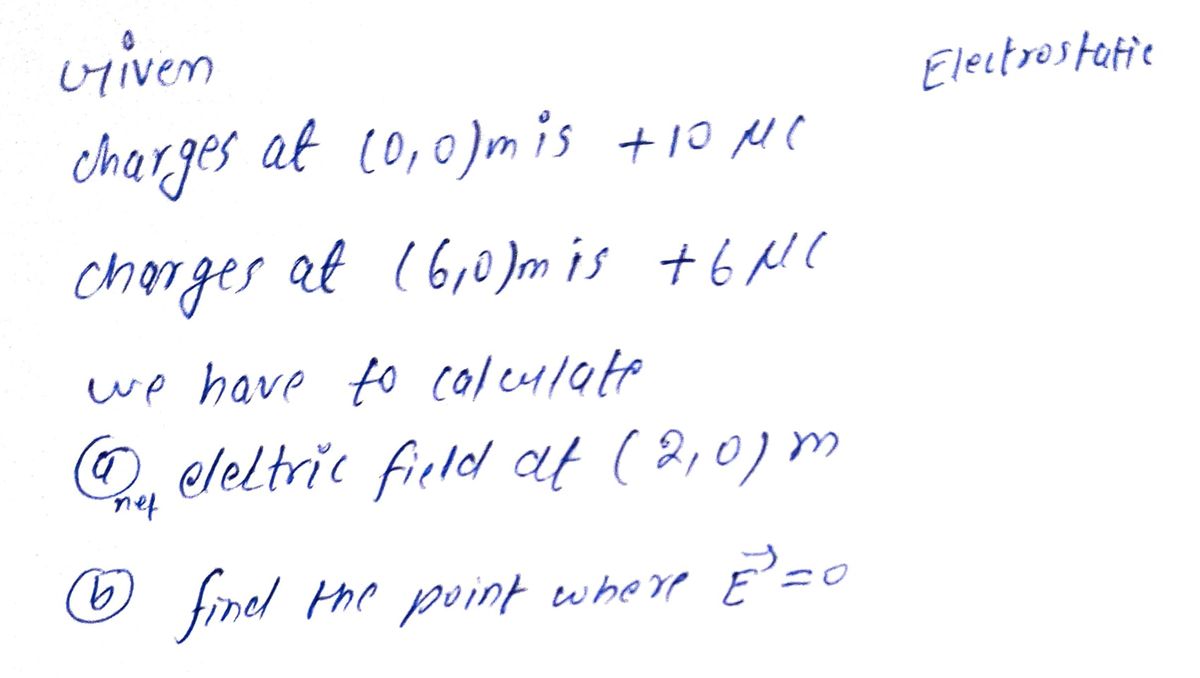 Given
Electrostatic
charges at (0,0)m is +10 μC
charges at (6,0)m is +6 μC
we have to calculate
(a) net electric field at (2,0) m
(b) find the point where E⃗ = 0